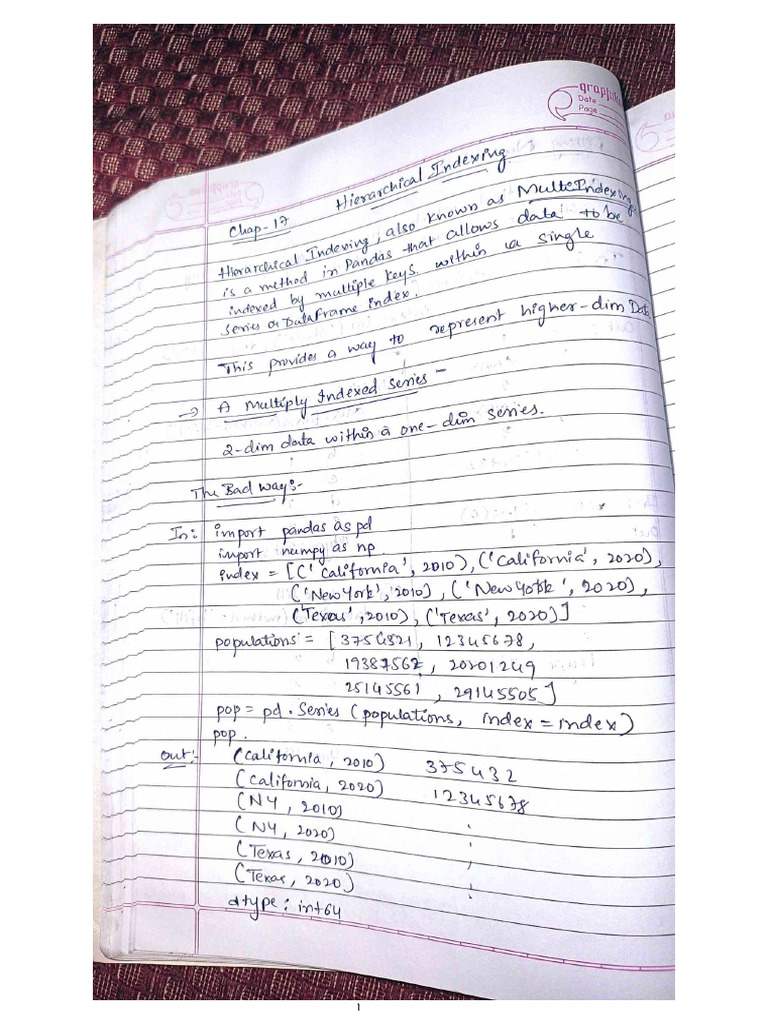 grapho
Date
Page
Chap-17 Hierarchical Indexing
Hierarchical Indexing, also known as MulteIndexing
is a method in Pandas that allows data to be
indexed by multiple keys within a single
Series or DataFrame index.
This provides a way to represent higher-dim Data
→ A Multiply Indexed Series -
2-dim data within a one-dim series.
The Bad way:-
In: import pandas as pd
import numpy as np
index = [('California', 2010), ('California', 2020),
('New York', 2010), ('New York', 2020),
('Texas', 2010), ('Texas', 2020)]
populations = [3754321, 12345678,
19387562, 20201249
25145561, 29145505]
pop = pd.Series (populations, index = index)
pop.
Out:- (California, 2010) 375432
(California, 2020) 12345678
(NY, 2010)
(NY, 2020)
(Texas, 2010)
(Texas, 2020)
dtype: int64
1